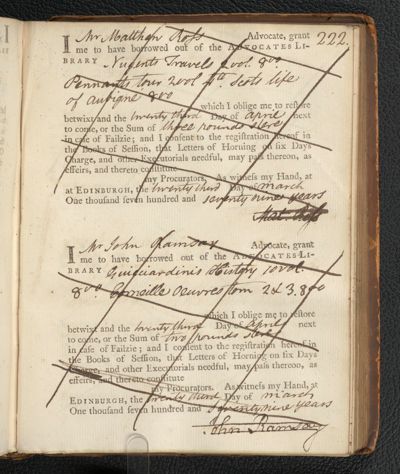 222.
I Mr Matthew Ross Advocate, grant
me to have borrowed out of the ADVOCATES LI-
BRARY Nugents Travels 4 vol. 8vo
Pennants tour 2 vol 4to. Scots life
of aubigne 8vo
which I oblige me to restore
betwixt and the twenty third Day of April next
to come, or the Sum of three pounds sterl
in case of Failzie; and I consent to the registration hereof in
the Books of Session, that Letters of Horning on six Days
Charge, and other Executorials needful, may pass thereon, as
effeirs, and thereto constitute
my Procurators. As witness my Hand, at
at EDINBURGH, the twenty third Day of march
One thousand seven hundred and seventy nine years
Mat. Ross
I Mr John Ramsay Advocate, grant
me to have borrowed out of the ADVOCATES LI-
BRARY Guicciardinis History 10 vol.
8vo. Corneille Oeuvres tom 2 & 3. 8vo
which I oblige me to restore
betwixt and the twenty third Day of April next
to come, or the Sum of two pounds sterl
in case of Failzie; and I consent to the registration hereof in
the Books of Session, that Letters of Horning on six Days
Charge, and other Executorials needful, may pass thereon, as
effeirs, and thereto constitute
my Procurators. As witness my Hand, at
EDINBURGH, the twenty third Day of march
One thousand seven hundred and seventy nine years
John Ramsay